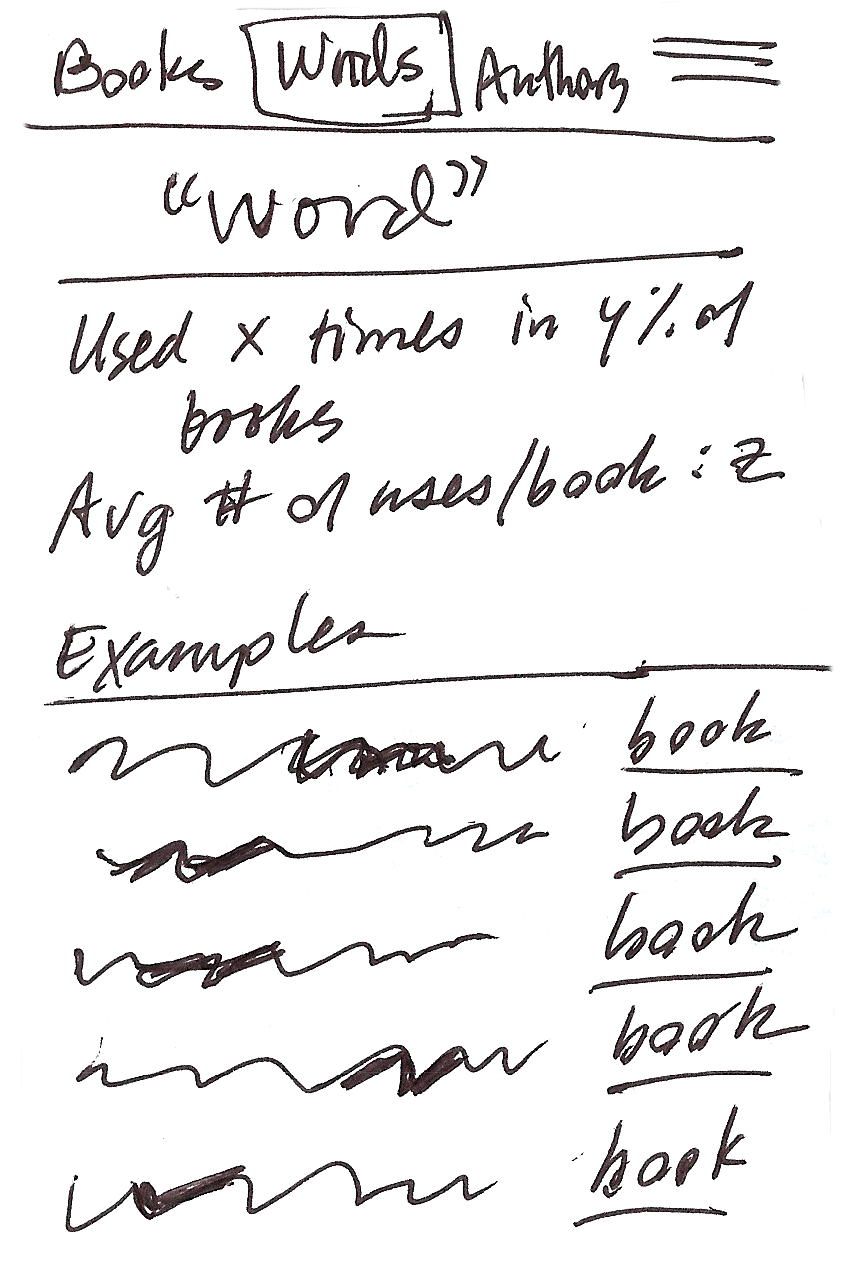 Books Words Authors
“Word”
Used x times in y% of
books
Avg # of uses/book : z
Examples
book
book
book
book
book